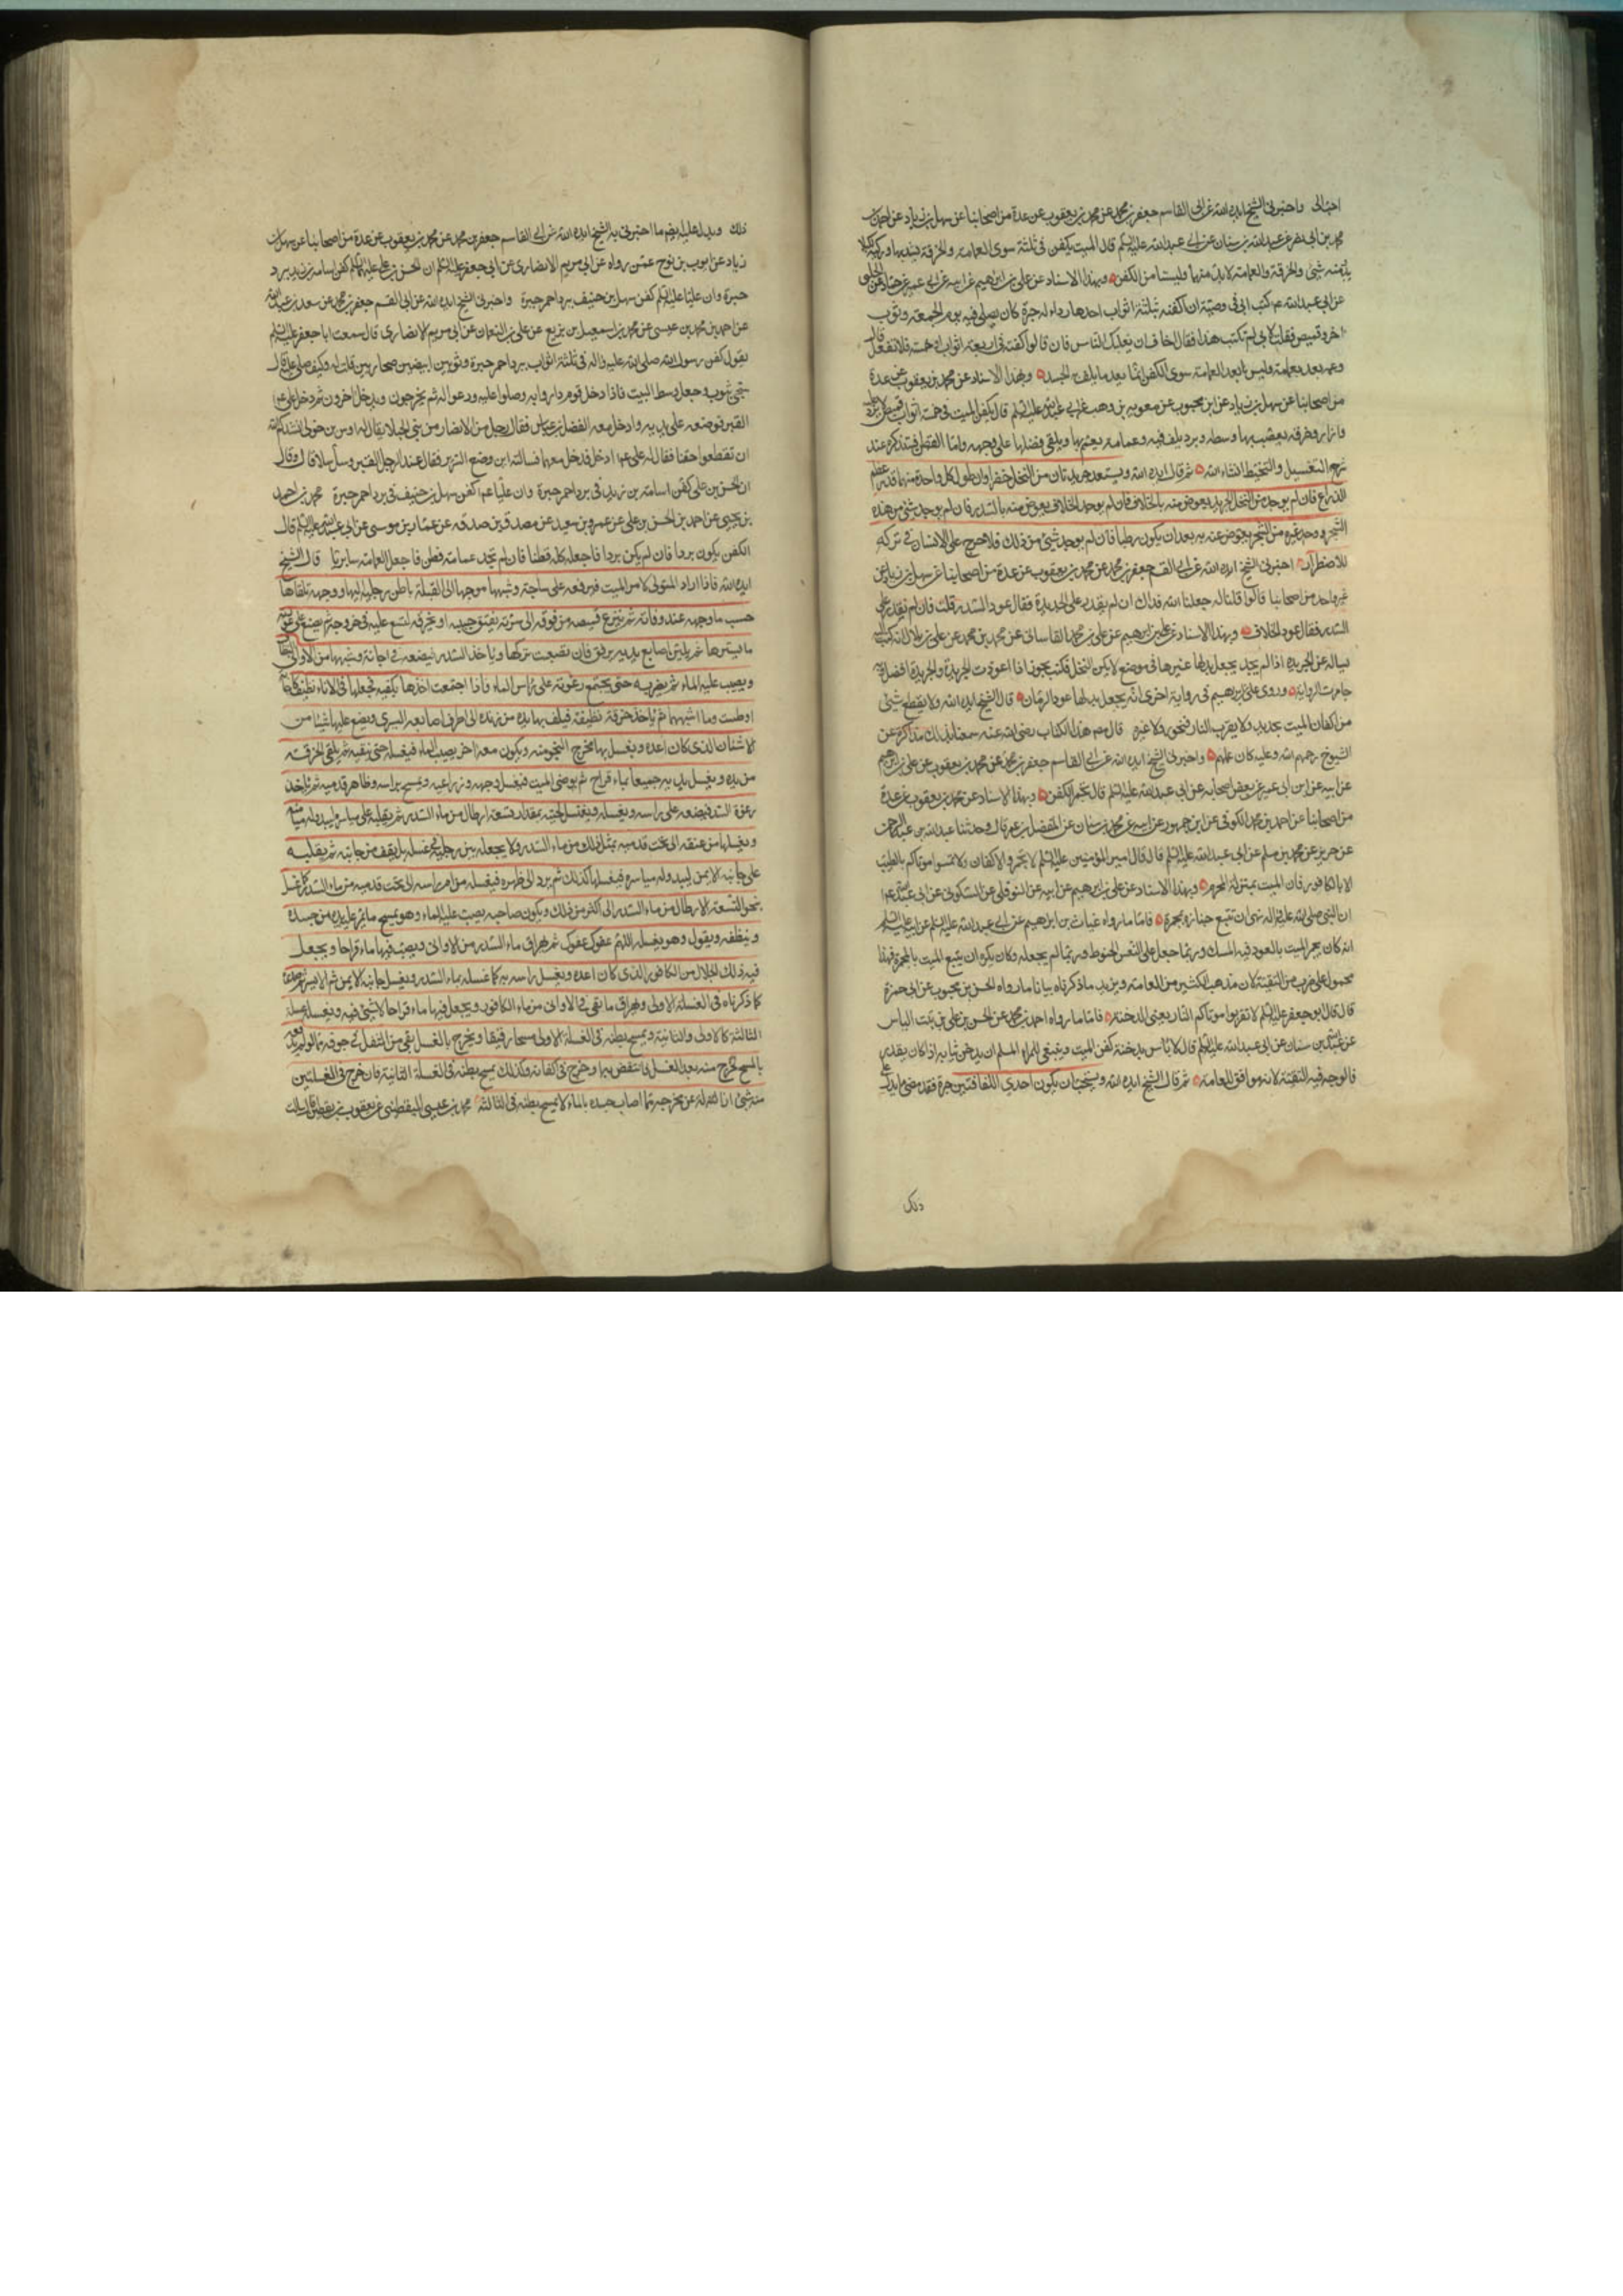 احب الى واخبرنى الشيخ ايده الله عن ابى القاسم جعفر بن محمد عن محمد بن يعقوب عن عدة من اصحابنا عن سهل بن زياد عن احمد بن
محمد بن ابى نصر عن عبد الله بن سنان عن ابى عبد الله عليه السلام قال الميت يكفن فى ثلثة سوى العمامة والخرقة يشد بها وركيه لكيلا
يبدو منه شئ والخرقة والعمامة لا بد منهما وليستا من الكفن وبهذا الاسناد عن على بن ابرهيم عن ابيه عن ابن ابى عمير عن حماد عن الحلبى
عن ابى عبد الله ع م كتب ابى فى وصيته ان اكفنه بثلثة اثواب احدها رداء له حبرة كان يصلى فيه يوم الجمعة وثوب
اخر وقميص فقلت لابى لم تكتب هذا فقال اخاف ان يغلبك الناس فان قالوا كفنه فى اربعة اثواب او خمسة فلا تفعل قال
وعمه بعد بعمامة وليس تعد العمامة من الكفن انما يعد ما يلف به الجسد وبهذا الاسناد عن محمد بن يعقوب عن عدة
من اصحابنا عن سهل بن زياد عن ابن محبوب عن معوية بن وهب عن ابى عبد الله عليه السلام قال يكفن الميت فى خمسة اثواب قميص لا يزر عليه
وازار وخرقة يعصب بها وسطه وبرد يلف فيه وعمامة يعتم بها ويلقى فضلها على وجهه واما القطن فتذكره عند
شرح التغسيل والتحنيط انشاء الله ثم قال ايده الله ويستعد جريدتان من النخل خضراوان طول كل واحدة منهما قدر عظم
الذراع فان لم يوجد من النخل الجريد يعوض منه بالخلاف فان لم يوجد الخلاف يعوض منه بالسدر فان لم يوجد شئ من هذه
الشجر ووجد غيره من الشجر يعوض عنه به بعد ان يكون رطبا فان لم يوجد شئ من ذلك فلا حرج على الانسان فى تركه
للاضطرار اخبرنى الشيخ ايده الله عن ابى القسم جعفر بن محمد عن محمد بن يعقوب عن عدة من اصحابنا عن سهل بن زياد عن
غير واحد من اصحابنا قالوا قلنا له جعلنا الله فداك ان لم نقدر على الجريدة فقال عود السدر قلت فان لم نقدر على
السدر فقال عود الخلاف وبهذا الاسناد عن على بن ابرهيم عن على بن محمد القاسانى عن محمد بن محمد عن على بن بلال انه كتب اليه
يساله عن الجريدة اذا لم يجد يجعل بدلها غيرها فى موضع لا يمكن النخل فكتب يجوز اذا اعوزت الجريدة والجريدة افضل وبه
جاءت الرواية وروى على بن ابرهيم فى رواية اخرى انه يجعل بدلها عود الرمان قال الشيخ ايده الله ولا يقطع شئ
من اكفان الميت بحديد ولا يقرب النار ببخور ولا غيره قال محمد هذا الكتاب رضى الله عنه سمعنا ذلك مذاكرة عن
الشيوخ رحمهم الله وعليه كان عملهم واخبرنى الشيخ ايده الله عن ابى القاسم جعفر بن محمد عن محمد بن يعقوب عن على بن ابرهيم
عن ابيه عن ابن ابى عمير عن بعض اصحابه عن ابى عبد الله عليه السلام قال لا يجمر الكفن وبهذا الاسناد عن محمد بن يعقوب عن عدة
من اصحابنا عن احمد بن محمد الكوفى عن ابن جمهور عن ابيه عن محمد بن سنان عن المفضل بن عمر قال وحدثنا عبد الله بن عبد الرحمن
عن حريز عن محمد بن مسلم عن ابى عبد الله عليه السلام قال قال امير المؤمنين عليه السلام لا تجمروا الاكفان ولا تمسوا موتاكم بالطيب
الا بالكافور فان الميت بمنزلة المحرم وبهذا الاسناد عن على بن ابرهيم عن ابيه عن النوفلى عن السكونى عن ابى عبد الله ع م
ان النبى صلى الله عليه واله نهى ان تتبع جنازة بمجمرة فاما ما رواه غياث بن ابراهيم عن ابى عبد الله عليه السلام عن ابيه عليه السلام
انه كان يجمر الميت بالعود فيه المسك وربما جعل على النعش الحنوط وربما لم يجعله وكان يكره ان يتبع الميت بالمجمرة فهذا
محمول على ضرب من التقية لان مذهب الكثير من العامة ويزيد ما ذكرناه بيانا ما رواه الحسن بن محبوب عن ابى حمزة
قال قال ابو جعفر عليه السلام لا تقربوا موتاكم النار يعنى الدخنة فاما ما رواه احمد بن محمد عن الحسن بن على بن بنت الياس
عن عبد الله بن سنان عن ابى عبد الله عليه السلام قال لا باس بدخنة كفن الميت وينبغى للمرء المسلم ان يدخن ثيابه اذا كان يقدر
فالوجه فيه التقية لانه موافق للعامة ثم قال الشيخ ايده الله ويستحب ان يكون احدى اللفافتين حبرة فقد مضى ما يدل على
ذلك
ذلك ويدل عليه ايضا ما اخبرنى به الشيخ ايده الله عن ابى القاسم جعفر بن محمد عن محمد بن يعقوب عن عدة من اصحابنا عن سهل بن
زياد عن ايوب بن نوح عمن رواه عن ابى مريم الانصارى عن ابى جعفر عليه السلام ان الحسن بن على عليهما السلام كفن اسامة بن زيد ببرد
حبرة وان عليا عليه السلام كفن سهل بن حنيف ببرد احمر حبرة واخبرنى الشيخ ايده الله عن ابى القسم جعفر بن محمد عن سعد بن عبد الله
عن احمد بن محمد بن عيسى عن محمد بن اسمعيل بن بزيع عن على بن النعمان عن ابى مريم الانصارى قال سمعت ابا جعفر عليه السلام
يقول كفن رسول الله صلى الله عليه واله فى ثلثة اثواب برد احمر حبرة وثوبين ابيضين صحاريين قلت له وكيف صلى عليه قال
سجى بثوب وجعل وسط البيت فاذا دخل قوم داروا به وصلوا عليه ودعوا له ثم يخرجون ويدخل اخرون ثم دخل على ع م
القبر فوضعه على يديه وادخل معه الفضل بن عباس فقال رجل من الانصار من بنى الخيلاء يقال له اوس بن خولى انشدكم الله
ان تقطعوا حقنا فقال له على ع م ادخل فدخل معهما فسالته اين وضع السرير فقال عند رجل القبر وسل سلا قال وقال
ان الحسن بن على كفن اسامة بن زيد فى برد احمر حبرة وان عليا ع م كفن سهل بن حنيف فى برد احمر حبرة محمد بن احمد
بن يحيى عن احمد بن الحسن بن على عن عمرو بن سعيد عن مصدق بن صدقه عن عمار بن موسى عن ابى عبد الله عليه السلام قال
الكفن يكون بردا فان لم يكن بردا فاجعله كله قطنا فان لم تجد عمامة قطن فاجعل العمامة سابريا قال الشيخ
ايده الله فاذا اراد المتولى لامر الميت فيرفعه على ساجة وشبهها موجها الى القبلة باطن رجليه اليها ووجهه تلقاها
حسب ما وجهه عند وفاته ثم ينزع قميصه من فوقه الى سرته يفتق جيبه او يخرقه ليتسع عليه فى خروجه ثم يضع على عورته
ما يسترها ثم يلين اصابع يديه برفق فان تصعبت تركها وياخذ السدر فيضعه فى اجانة وشبهها من الاوانى النظاف
ويصب عليه الماء ثم يضربه حتى يجتمع رغوته على راس الماء فاذا اجتمعت اخذها بكفيه فجعلها فى اناء نظيف كاجانة
او طست وما اشبههما ثم ياخذ خرقة نظيفة فيلف بها يده من زنده الى اطراف اصابعه اليسرى ويضع عليها شيئا من
الاشنان الذى كان اعده ويغسل بها مخرج النجو منه ويكون معه اخر يصب الماء فيغسله حتى ينقيه ثم يلقى الخرقة
من يده ويغسل يديه جميعا بماء قراح ثم يوضى الميت فيغسل وجهه وذراعيه ويمسح براسه وظاهر قدميه ثم ياخذ
رغوة السدر فيضعه على راسه ويغسله ويغسل لحيته بمقدار تسعة ارطال من ماء السدر ثم يقلبه على مياسره ليبدو له ميامنه
ويغسلها من عنقه الى تحت قدميه بمثل ذلك من ماء السدر ولا يجعله بين رجليه فى غسله بل يقف من جانبه ثم يقلبه
على جانبه الايمن ليبدو له مياسره فيغسلها كذلك ثم يرد الى ظهره فيغسله من ام راسه الى تحت قدميه من ماء السدر كما غسل
بنحو التسعة الارطال من ماء السدر الى اكثر من ذلك ويكون صاحبه يصب عليه الماء وهو يمسح ما يمر عليه يده من جسده
وينظفه ويقول وهو يغسله اللهم عفوك عفوك ثم يهراق ماء السدر من الاوانى ويصب فيها ماء قراحا ويجعل
فيه ذلك الجلال من الكافور الذى كان اعده ويغسل راسه به كما غسله بماء السدر ويغسل جانبه الايمن ثم الايسر ثم صدره
كما ذكرناه فى الغسلة الاولى ويهراق ما بقى فى الاوانى من ماء الكافور ويجعل فيها ماء قراحا لا شئ فيه ويغسله غسلة
الثالثة كالاولى والثانية ويمسح بطنه فى الغسلة الاولى مسحا رفيقا ويخرج بالغسل بقى من الثفل فى جوفه مما لو لم يدفعه
بالمسح لخرج منه بعد الغسل فانتقض به او خرج فى اكفانه وكذلك يمسح بطنه فى الغسلة الثانية فان خرج فى الغسلتين
منه شئ ازاله عن مخرجه مما اصاب جسده بالماء ولا يمسح بطنه فى الثالثة محمد بن عيسى اليقطينى عن يعقوب بن يقطين قال سالت